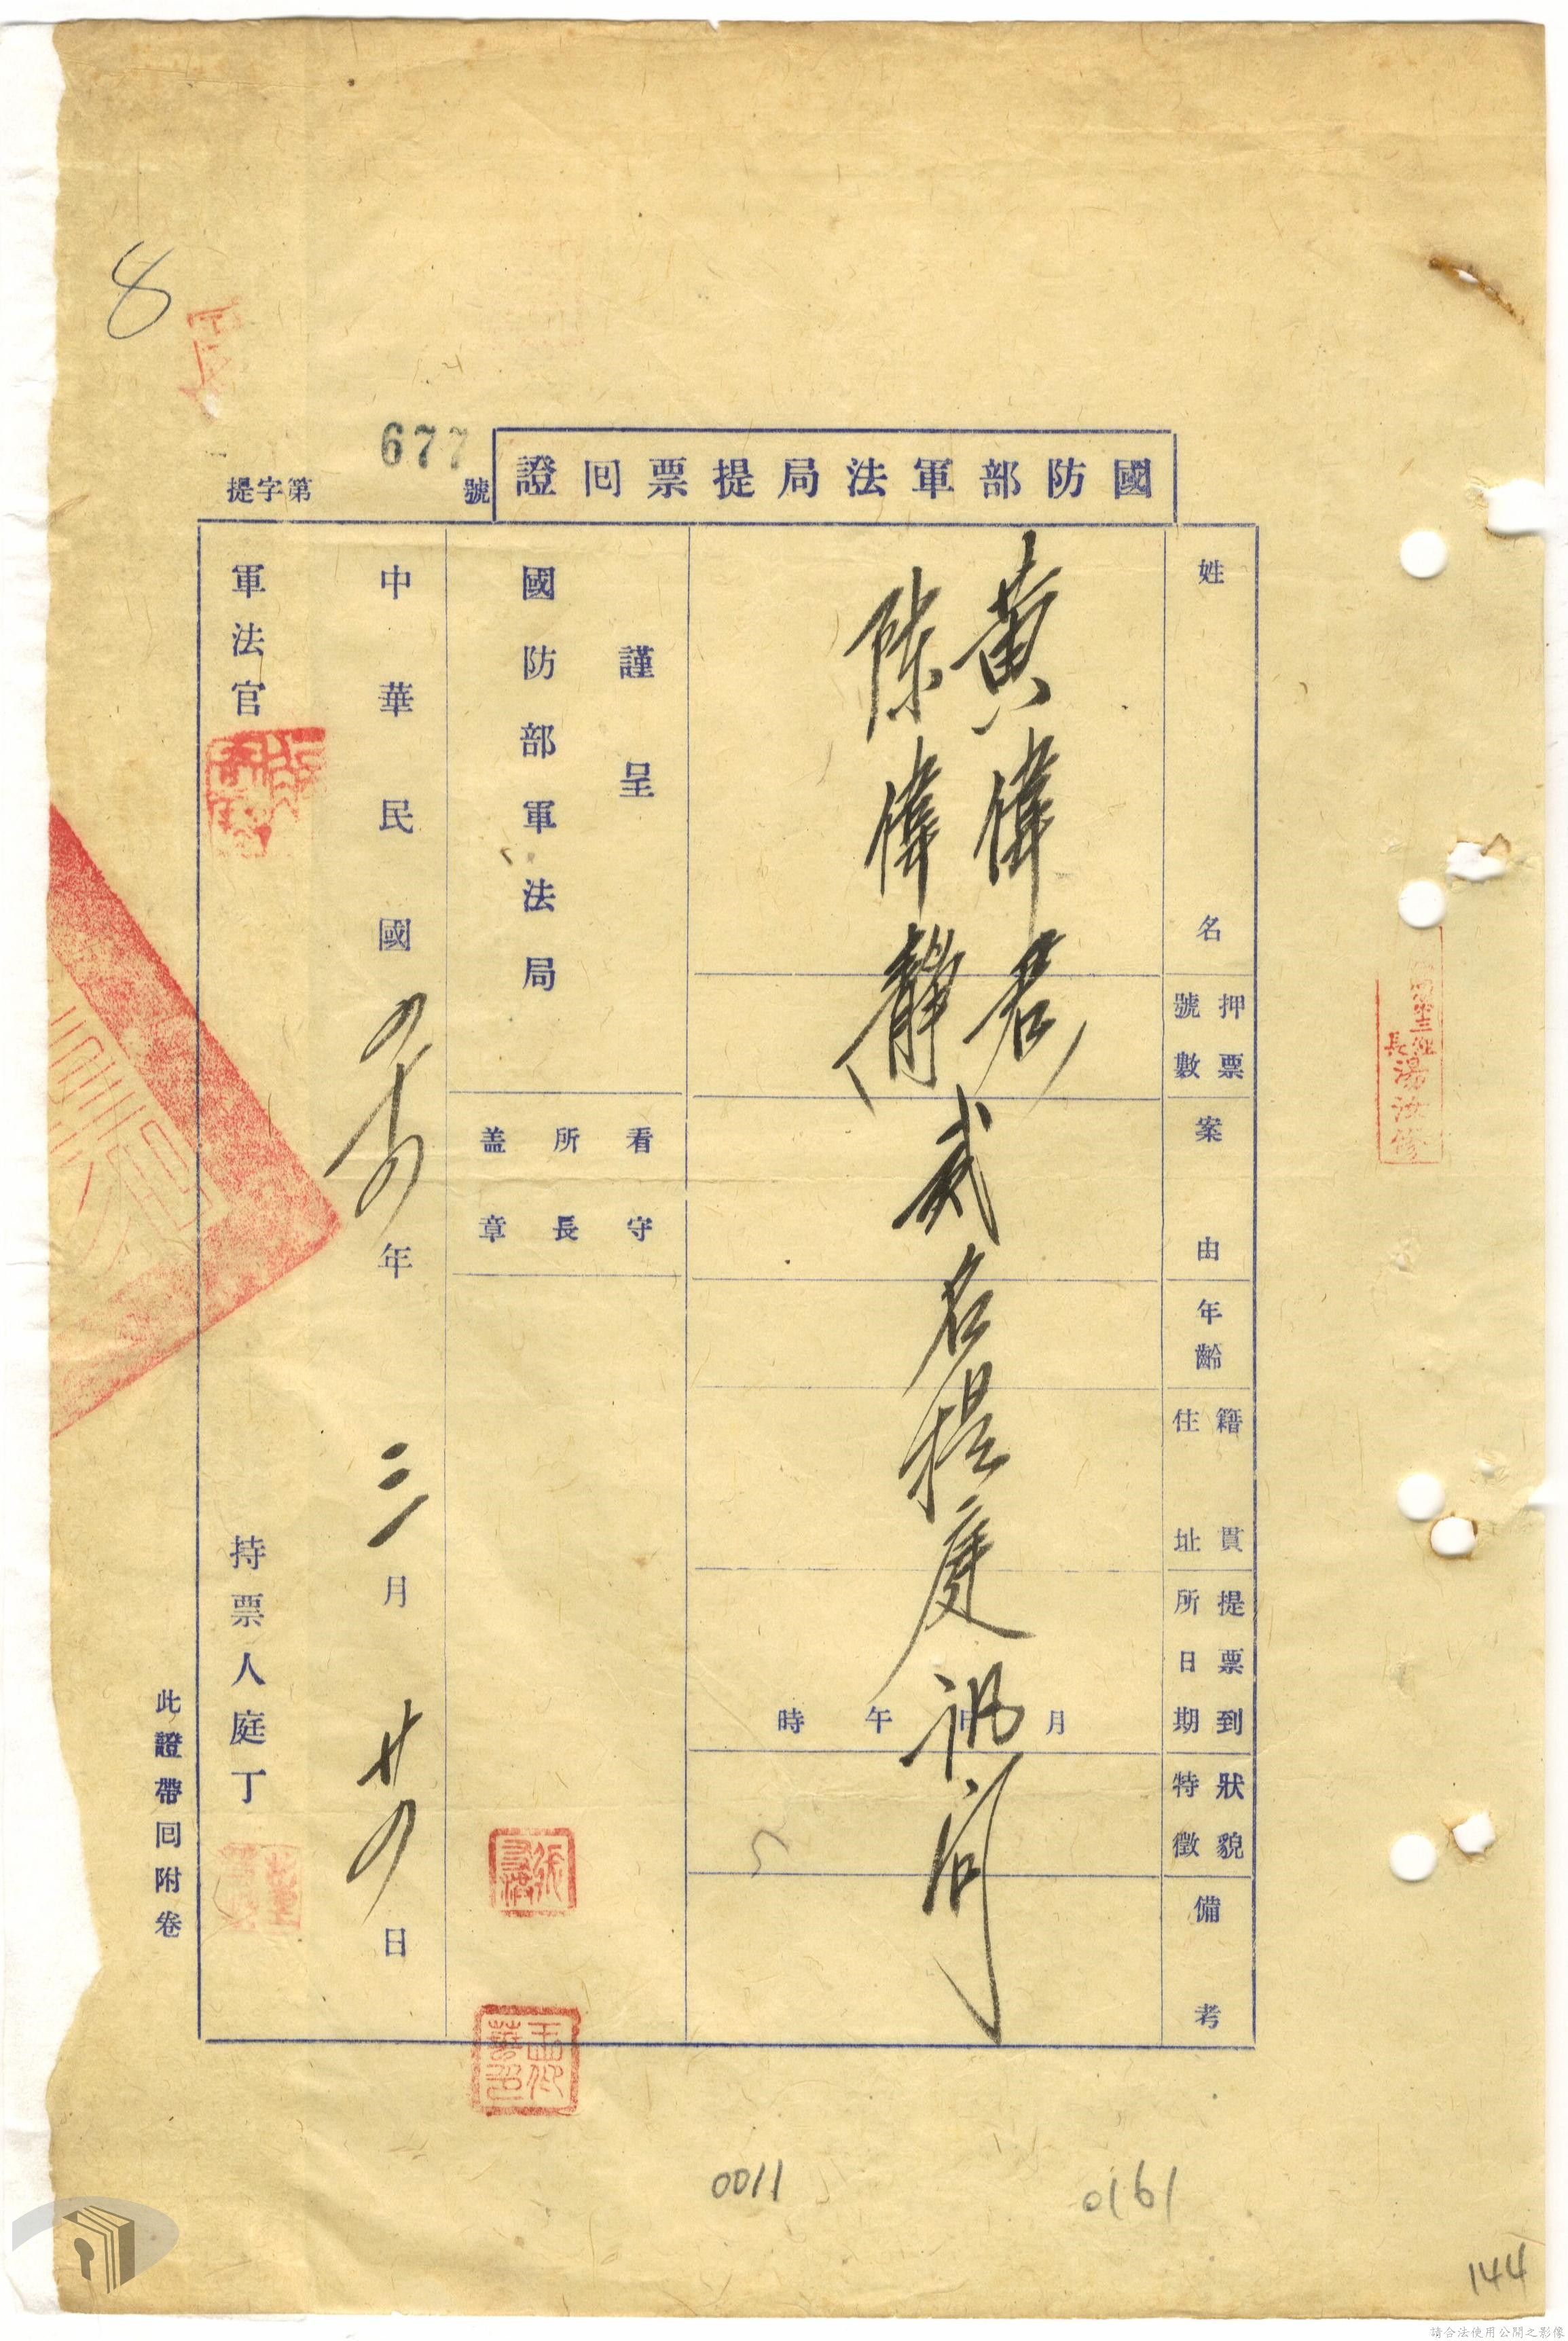 8
677
提字第 號
國防部軍法局提票回證
姓名
押票號數
案由
年齡
籍貫住址
提票到所日期
狀貌特徵
備考
黃偉君
陳偉靜
貳名提庭訊問
月 日 午 時
謹呈
國防部軍法局
看守所長蓋章
中華民國 年 三月廿 日
軍法官
持票人庭丁
此證帶回附卷
長湯汝修
0011
0161
144
請合法使用公開之影像